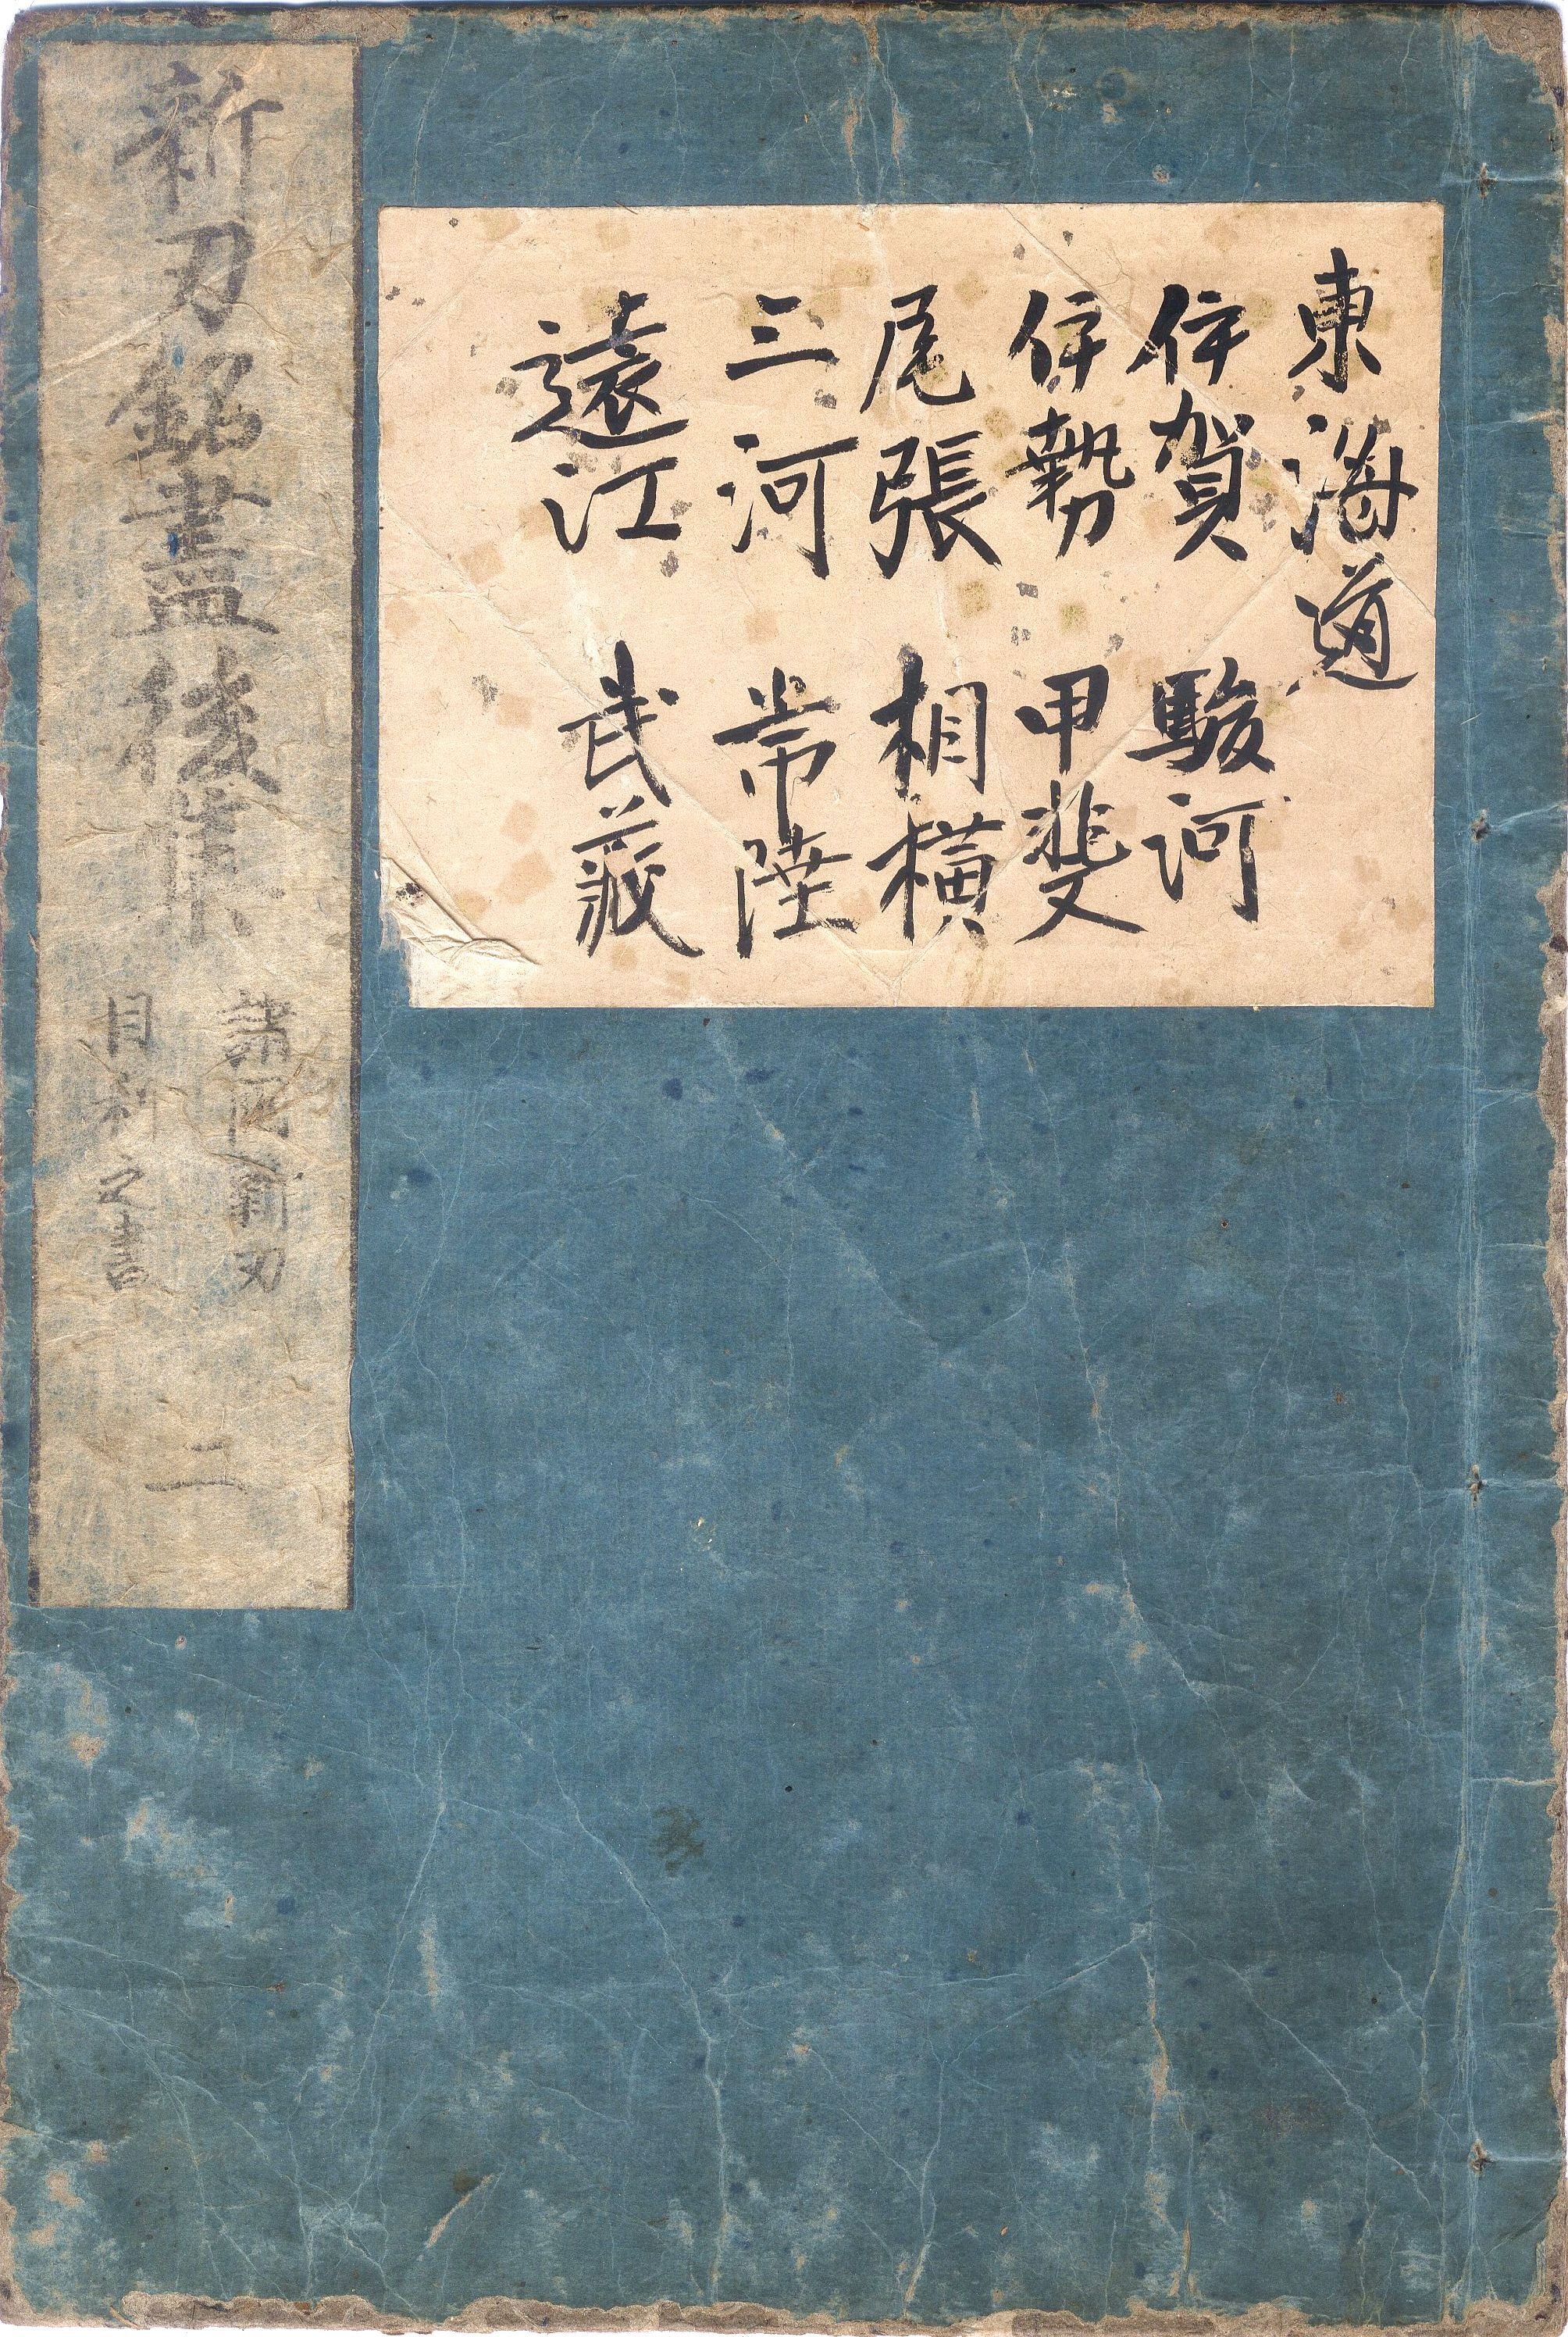 東海道
伊賀 駿河
伊勢 甲斐
尾張 相横
三河 常陸
遠江 武蔵
新刀銘盡後集
諸國新刀
目利之書
二